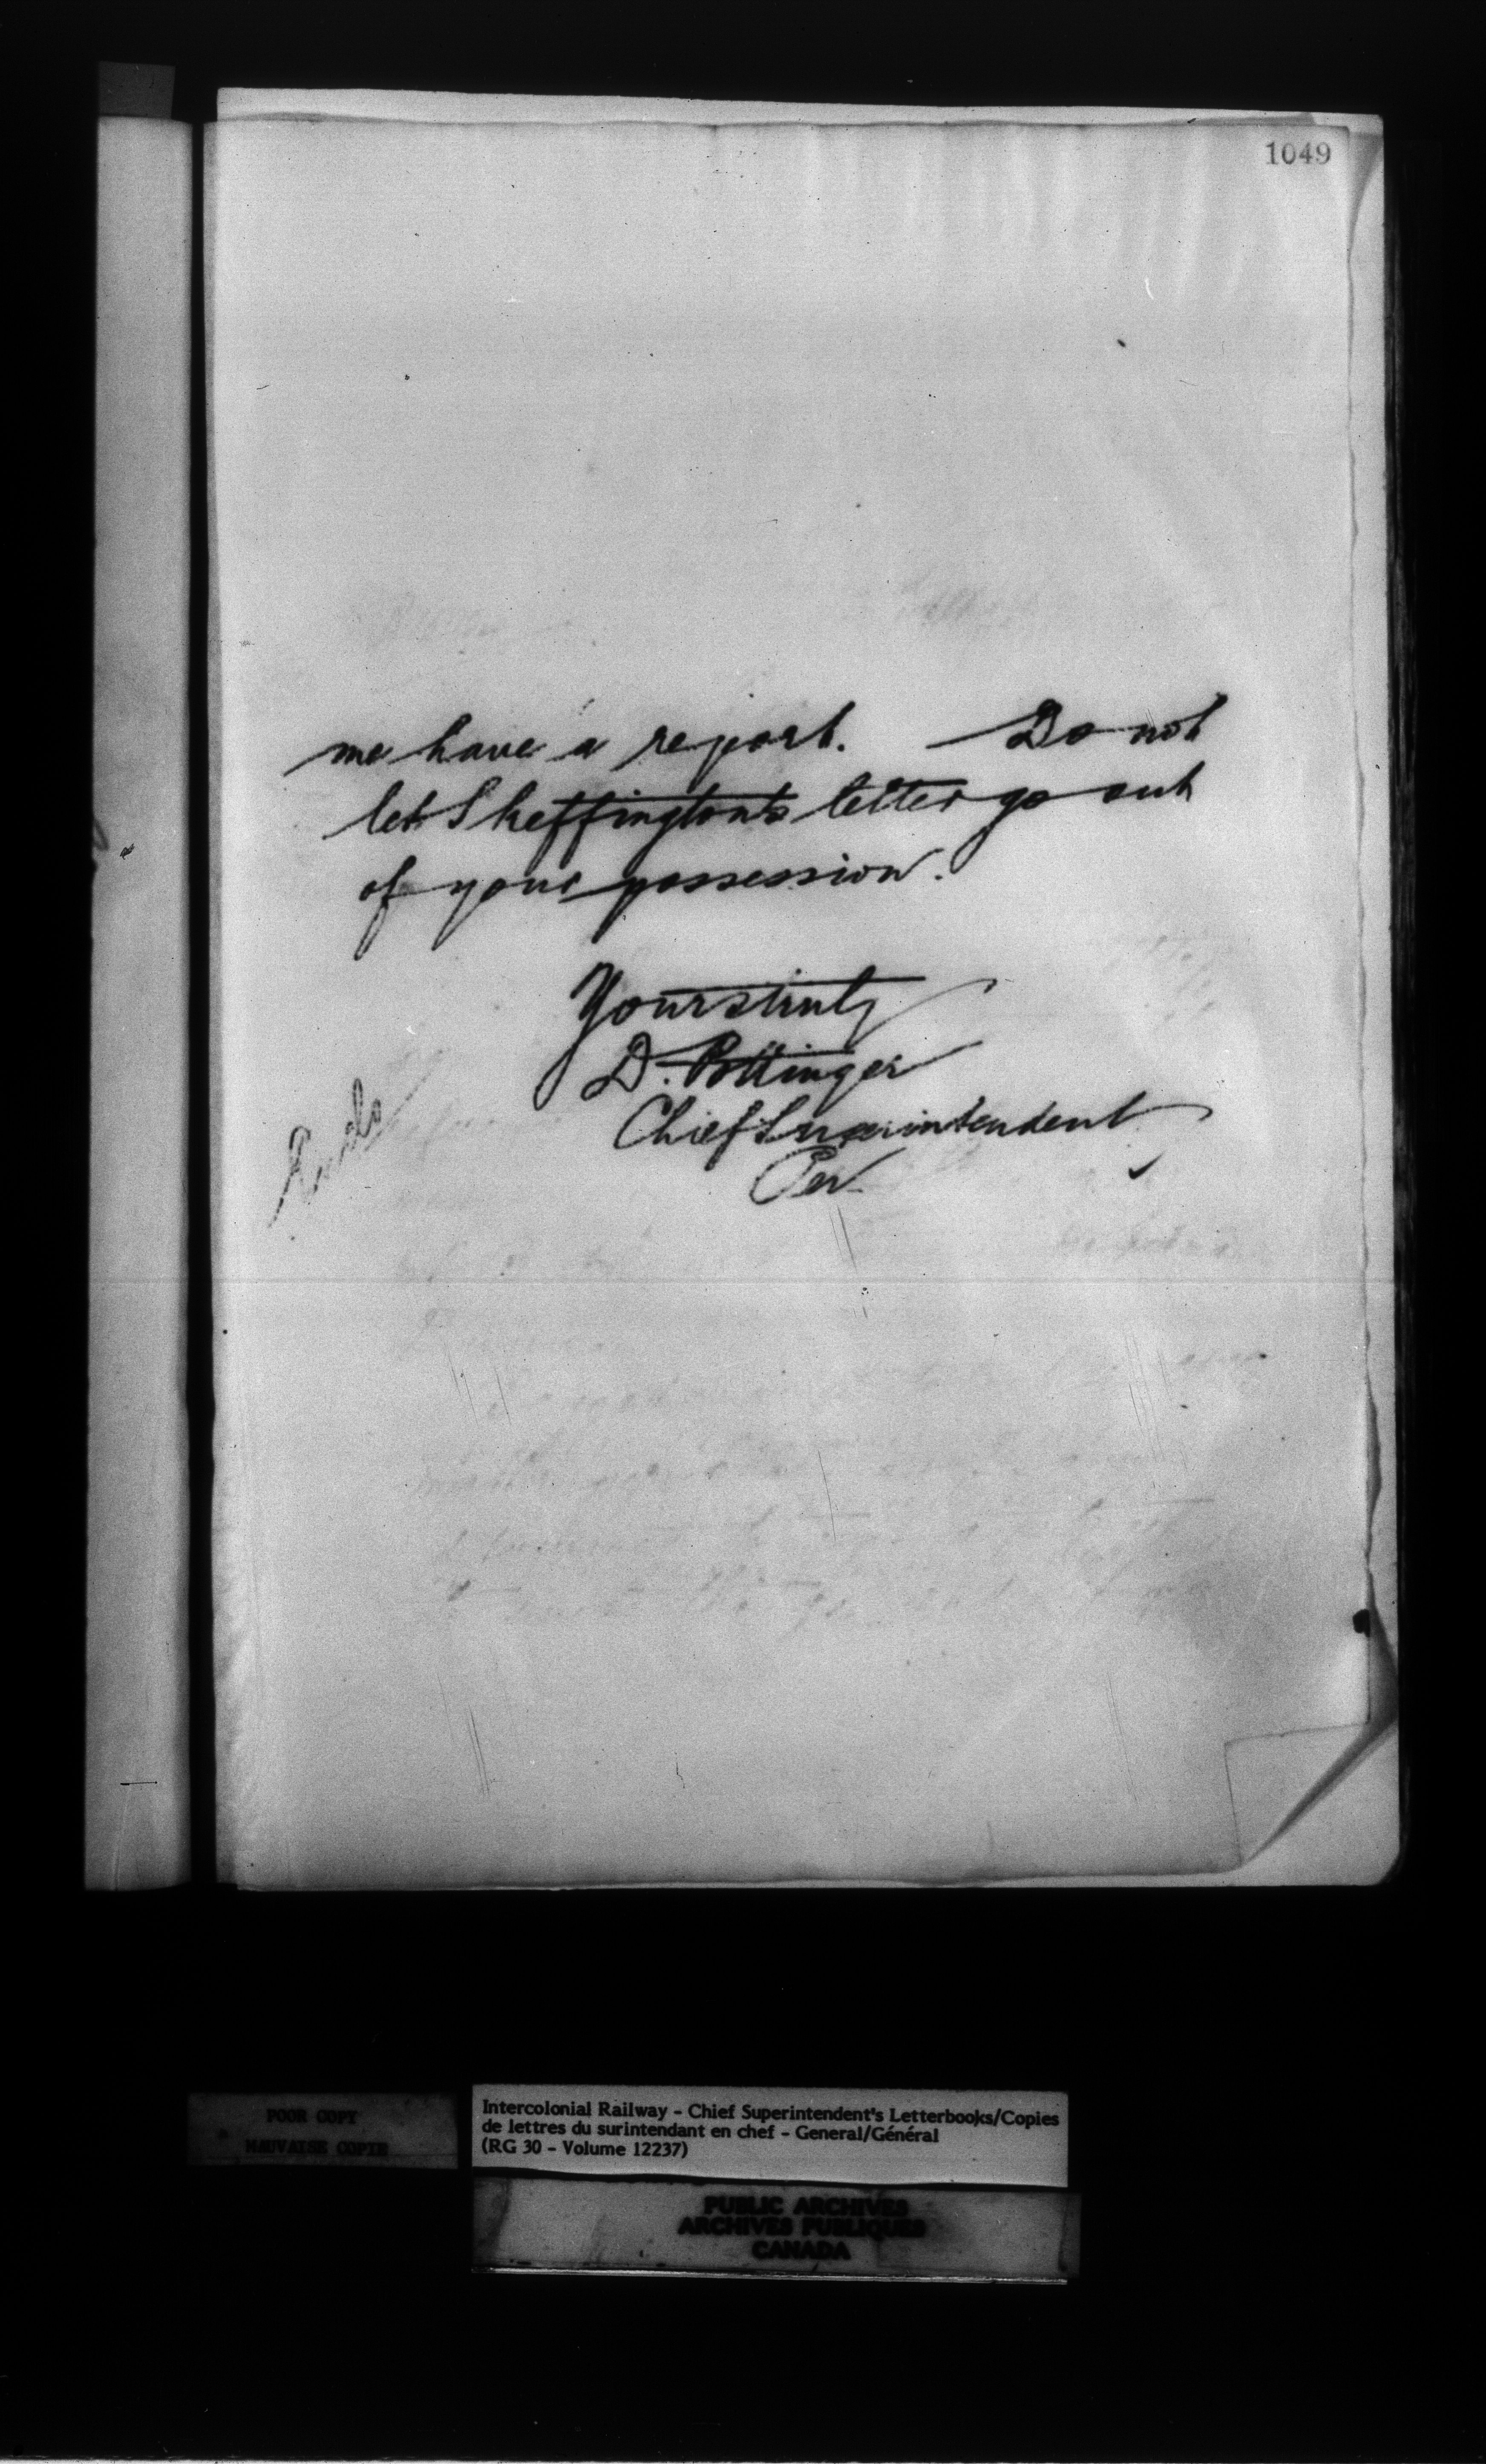 1049
me have a report. Do not
let Skeffington's letter go out
of your possession.
Yours truly
D. Pottinger
Chief Superintendent
Per
POOR COPY
MAUVAISE COPIE
Intercolonial Railway - Chief Superintendent's Letterbooks/Copies
de lettres du surintendant en chef - General/Général
(RG 30 - Volume 12237)
PUBLIC ARCHIVES
ARCHIVES PUBLIQUES
CANADA